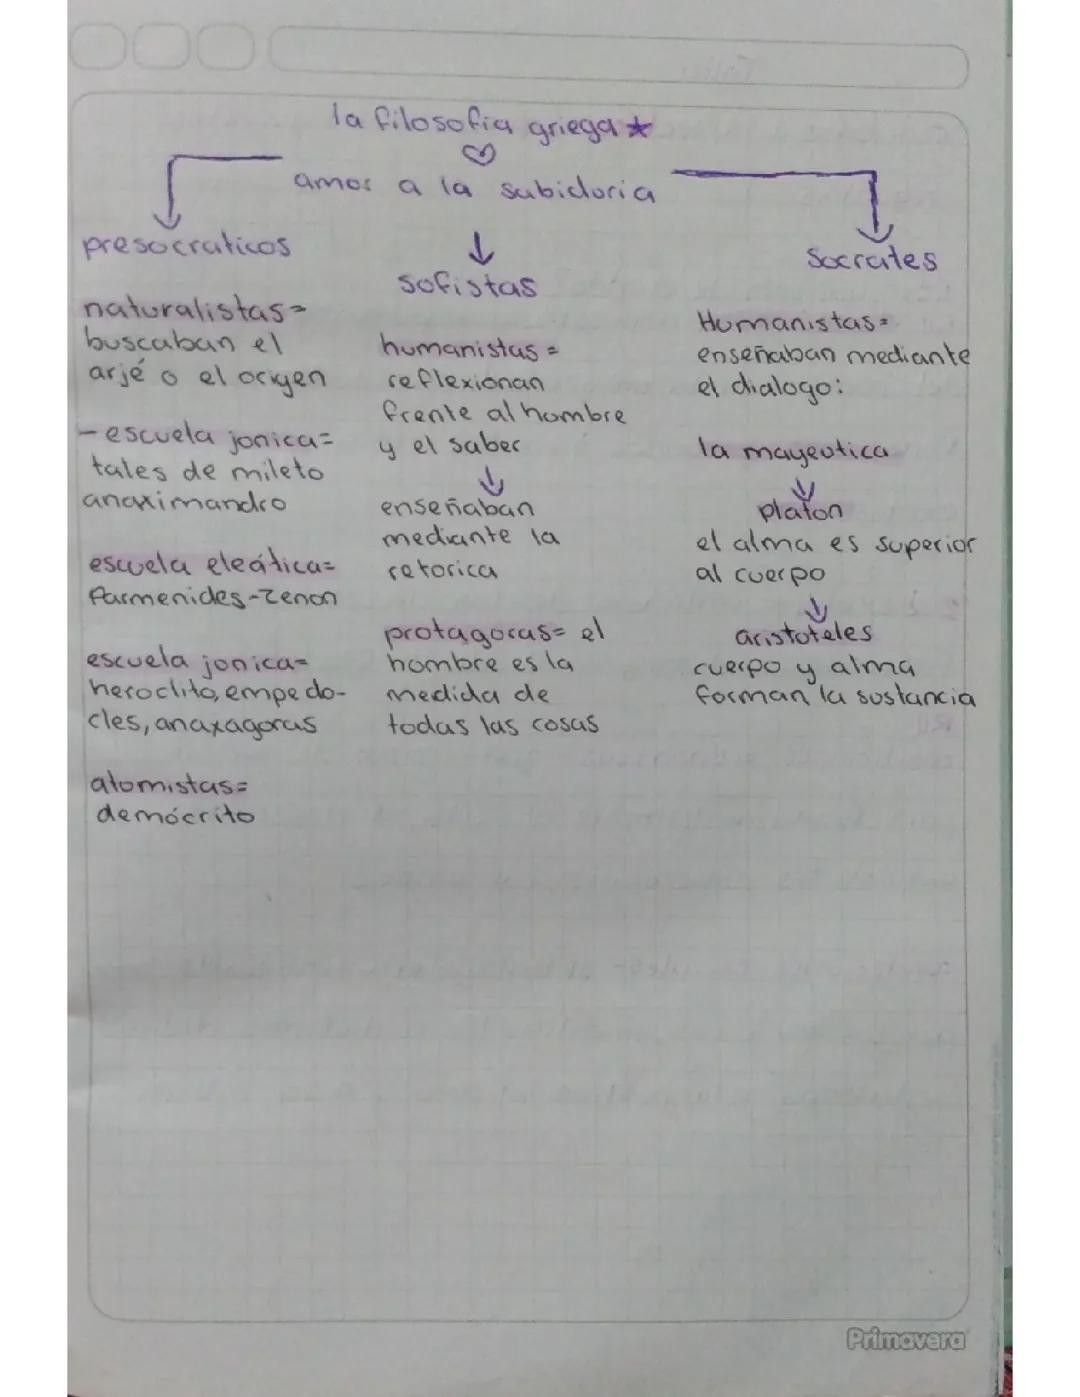 la filosofia griega
amor a la sabidoria
presocraticos
naturalistas=
buscaban el
arjé o el origen
- escuela jonica=
tales de mileto
anaximandro
escuela eleática=
Parmenides-Zenon
escuela jonica=
heroclito, empedo-
cles, anaxagoras
atomistas=
demócrito
sofistas
humanistas =
reflexionan
frente al hombre
y el saber
enseñaban
mediante la
retorica
protagoras= el
hombre es la
medida de
todas las cosas
Socrates
Humanistas=
enseñaban mediante
el dialogo:
la mayeutica
platon
el alma es superior
al cuerpo
aristoteles
cuerpo y alma
forman la sustancia
Primavera